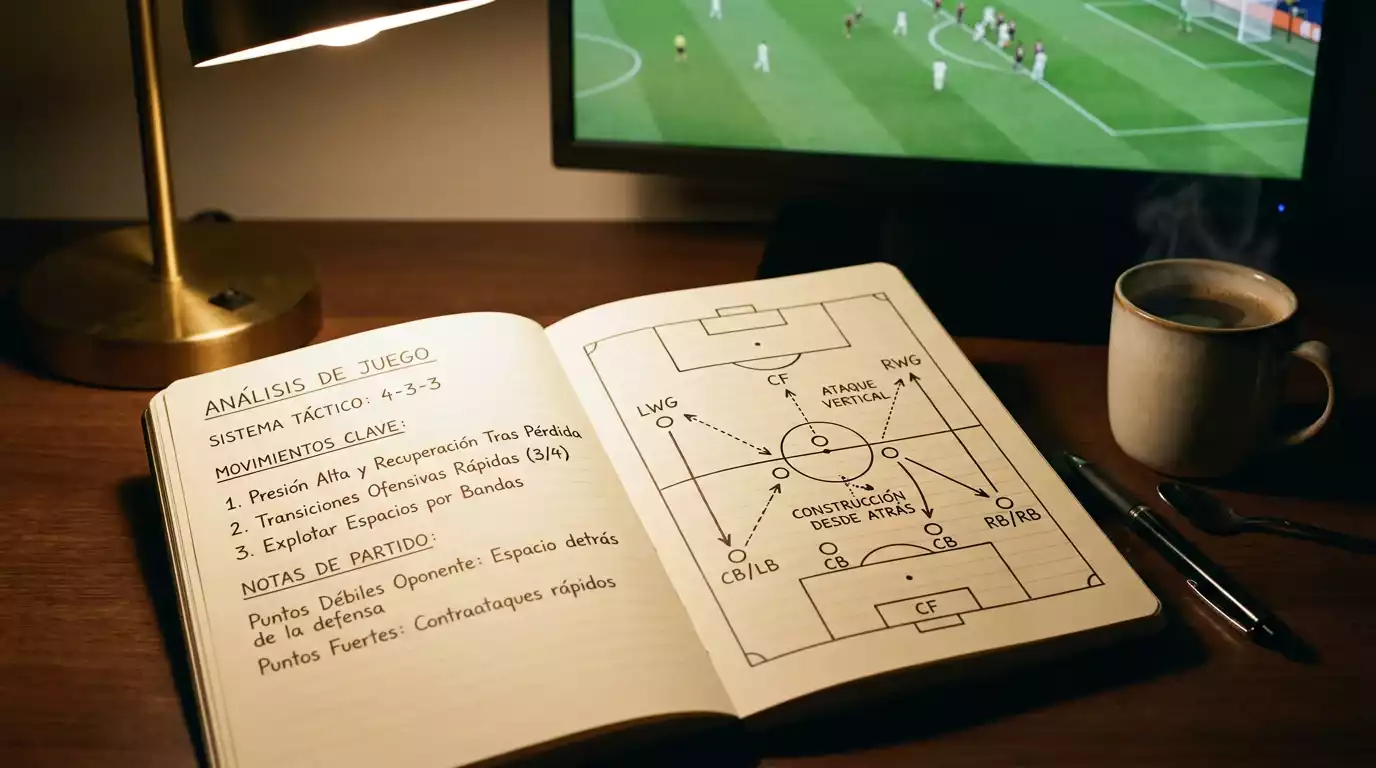 ANÁLISIS DE JUEGO
SISTEMA TÁCTICO: 4-3-3
MOVIMIENTOS CLAVE:
1. Presión Alta y Recuperación Tras Pérdida
2. Transiciones Ofensivas Rápidas (3/4)
3. Explotar Espacios por Bandas
NOTAS DE PARTIDO:
Puntos Débiles Oponente: Espacio detrás
de la defensa
Puntos Fuertes: Contraataques rápidos
RWG
CF
ATAQUE
VERTICAL
LWG
CONSTRUCCIÓN
DESDE ATRÁS
RB/RB
CB
CB
CB/LB
CF